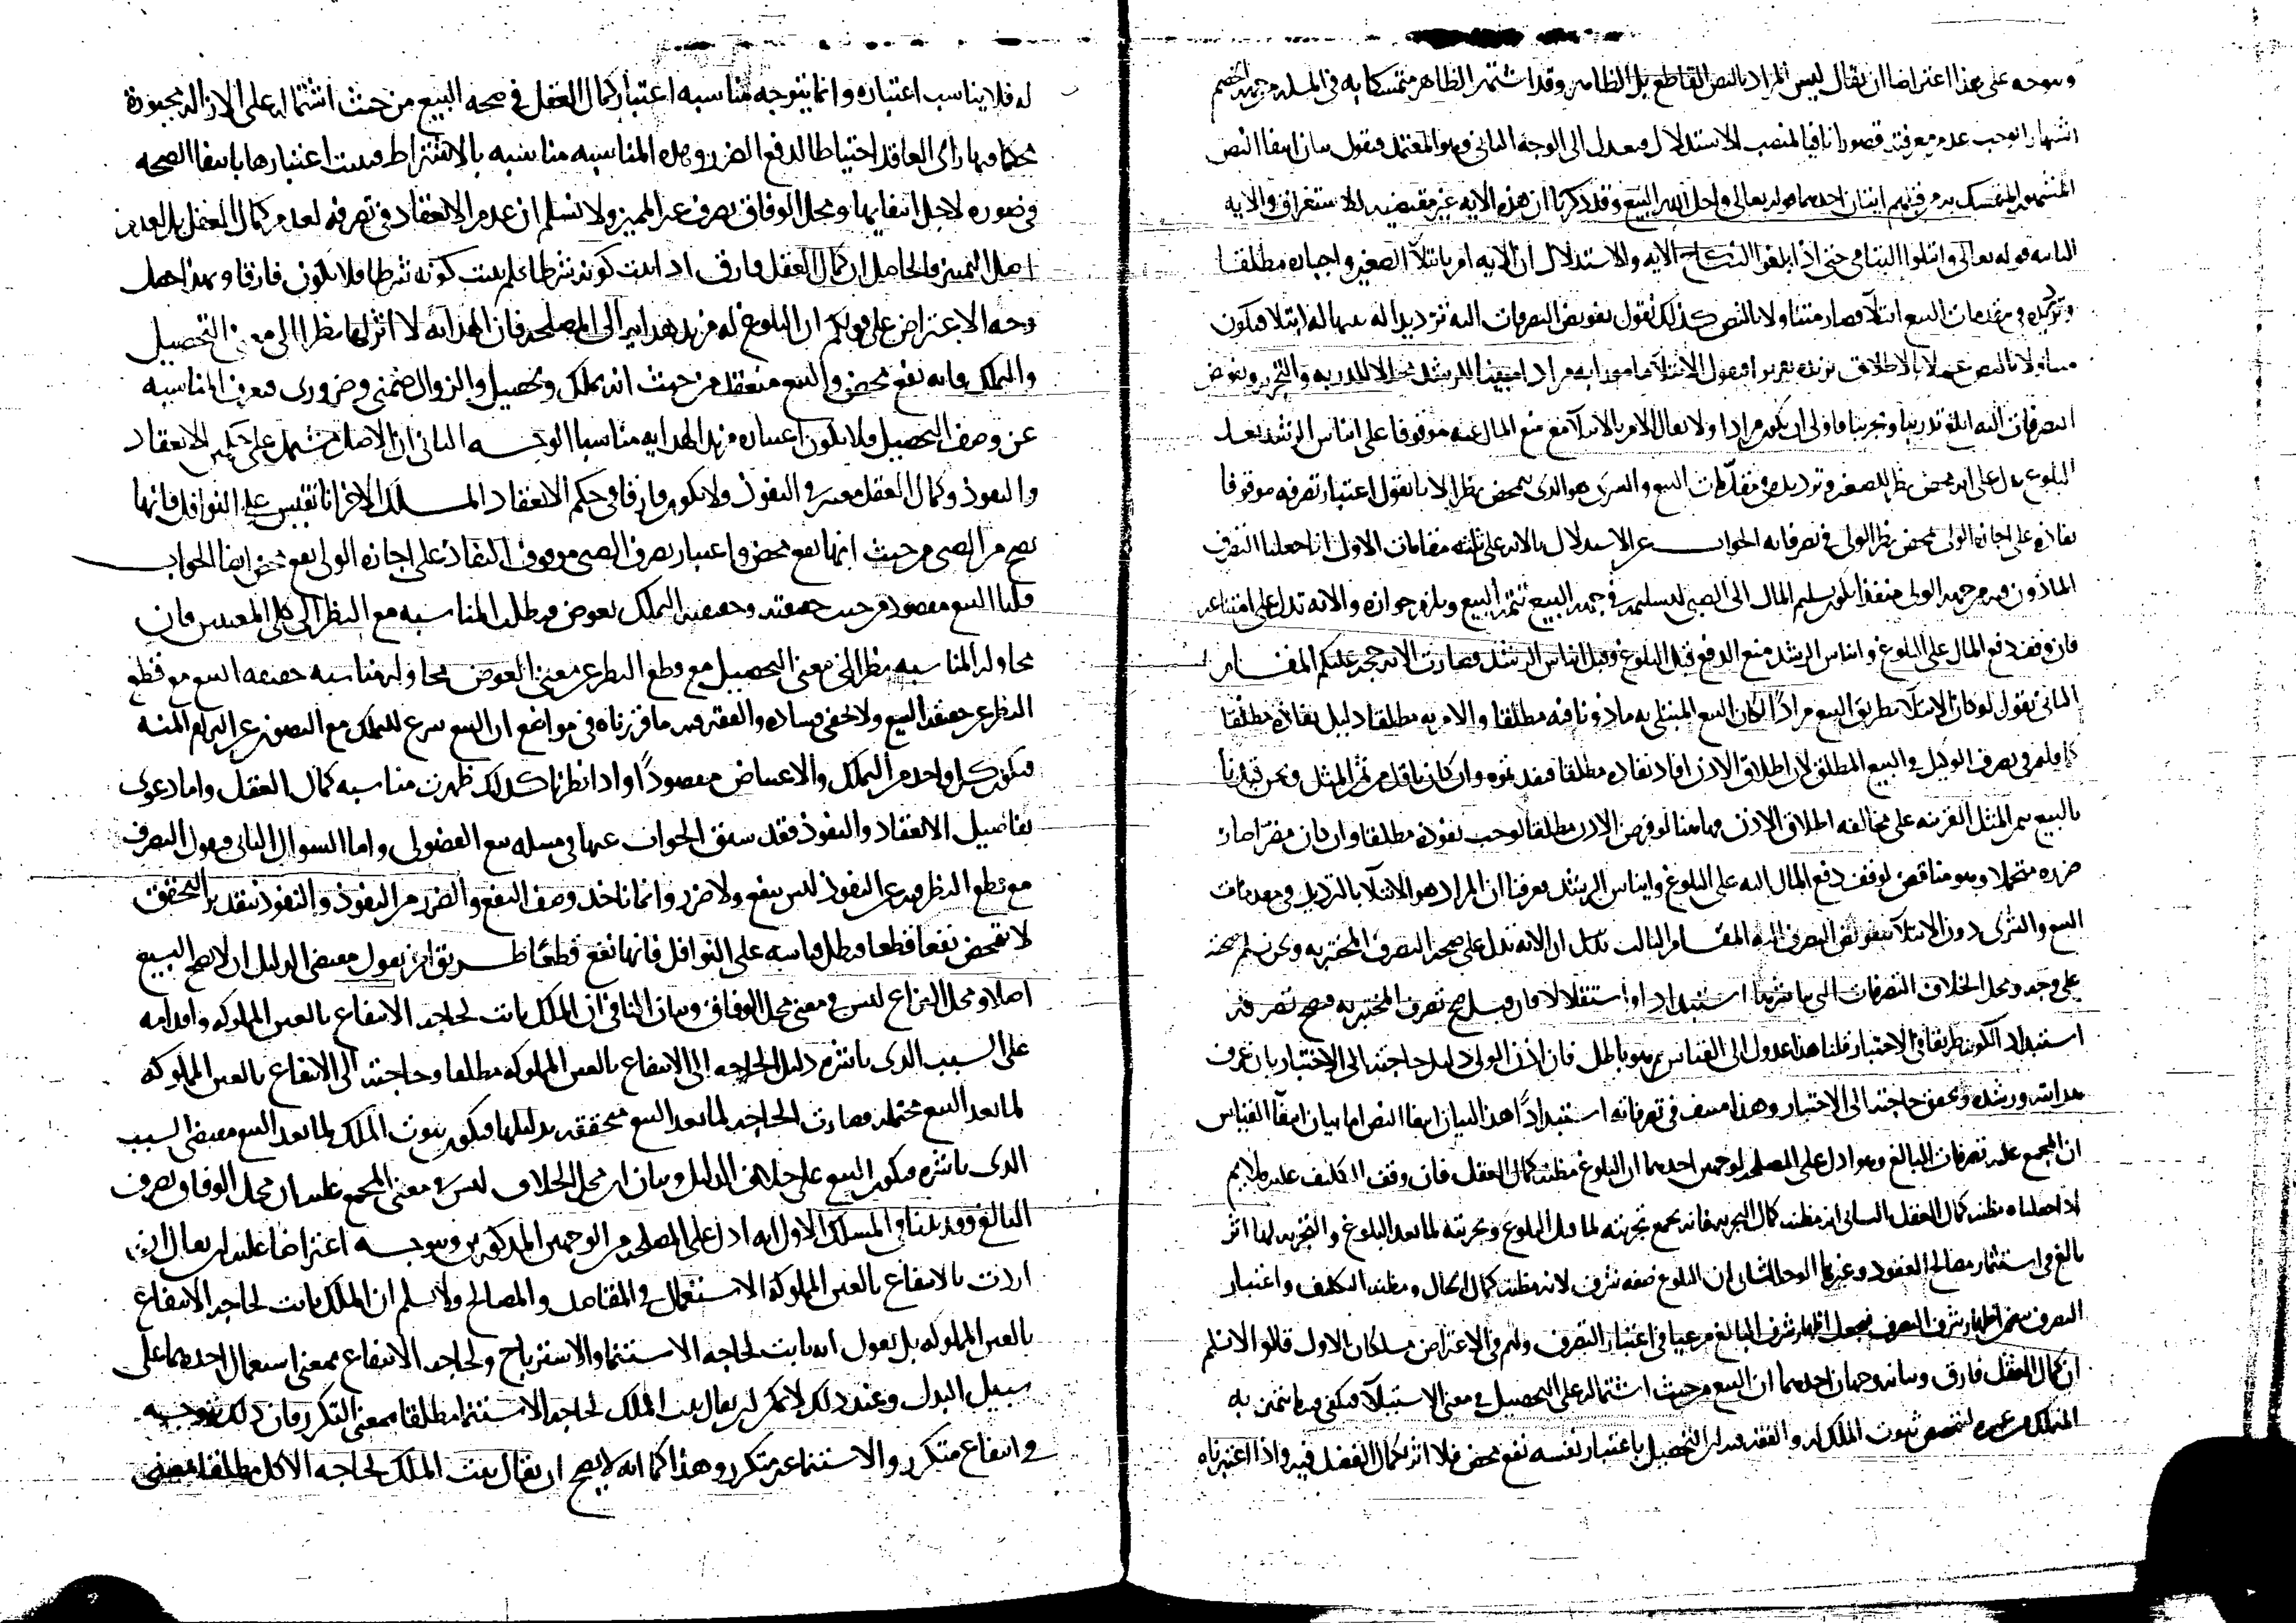 ويتوجه على هذا اعتراضا ان يقال ليس المراد بالنص القاطع بل الظاهر وقد اشتهر الظاهر متمسكا به في المسله من جهة الخصم
اشتهارا يوجب عدم معرفته قصورا نافيا لمنصب الاستدلال فيعدل الى الوجه الثاني وهو المعتمد فيقول بيان انتفا النص
المشهور المتمسك به من قبلهم ايتان احدهما قوله تعالى واحل الله البيع وقد ذكرنا ان هذه الايه غير مقتضيه للاستغراق والايه
الثانيه قوله تعالى وابتلوا اليتامى حتى اذا بلغوا النكاح الايه والاستدلال ان الايه امر بابتلآ الصغير واختباره مطلقا
وترديده في مقدمات البيع ابتلآ فصار متناولا بالنص كذلك نقول تفويض التصرفات اليه ترديدا له فيها له ابتلا فيكون
التصرفات اليه ابلغ تدريبا وتجريبا فاولى ان يكون مرادا ولا يقال الامر بالابتلآ مع منع المال عنه موقوفا على ايناس الرشد بعد
البلوغ يدل على انه محض نظر للصغير وترديده في مقدمات البيع والشرى هو الذي يتمحض نظرا لانا نقول اعتبار تصرفه موقوفا
نفاذه على اجازه الولي محض نظر الولي في تصرفاته الجواب عن الاستدلال بالايه على ثلثه مقامات الاول انا جعلنا التصرف
الماذون فيه من جهة الولي منفذا يكون تسليم المال الى الصبي ليسلمه في جهه البيع تتمه البيع ويلزم جوازه والايه تدل على امتناعه
فان وقف دفع المال على البلوغ وايناس الرشد منع الدفع قبل البلوغ وقبل ايناس الرشد فصارت الايه حجه عليكم المقام
الثاني نقول لو كان الابتلآ بطريق البيع مرادًا لكان البيع المبتلى به ماذونا فيه مطلقا والامر به مطلقا دليل نفاذه مطلقا
كما قلتم في تصرف الوكيل في البيع المطلق لان اطلاق الاذن افاد نفاذه مطلقا فينفذ بيعه وان كان باقل من ثمن المثل ونحن قيدنا
بالبيع بثمن المثل القرينه على مخالفه اطلاق الاذن وهاهنا لو فرض الاذن مطلقا لوجب نفوذه مطلقا وان كان مضرا صار
ضرره متحملا وهو مناقض لوقف دفع المال اليه على البلوغ وايناس الرشد فعرفنا ان المراد هو الابتلآ بالترديد في مقدمات
البيع والشرى دون الابتلآ بتفويض التصرف اليه المقام الثالث نقول ان الايه تدل على صحه التصرف المختبر به ونحن نسلم صحته
على وجه ومحل الخلاف التصرفات التي باشرها استبدادا واستقلالا فان قيل صح تصرف المختبر به فصح تصرفه
استبدادا لكونه طريقا في الاختبار قلنا هذا عدول الى القياس ثم هو باطل فان اذن الولي دليل حاجته الى الاختبار بان عرف
هدايته ورشده وتحقق حاجته الى الاختبار وهذا منتف في تصرفاته استبدادًا هذا البيان انتفا النص اما بيان انتفآ القياس
ان المجمع عليه تصرفات البالغ وهو ادل على المصلحه لوجهين احدهما ان البلوغ مظنه كمال العقل فان وقف التكليف عليه ملايم
اذا جعلناه مظنه كمال العقل الثاني انه مظنه كمال التجربه فانه يجمع تجربته لما قبل البلوغ وتجربته لما بعد البلوغ والتجربه لها اثر
بالغ في استثمار مصالح العقود وغيرها الوجه الثاني ان البلوغ صفه شرف لانه مظنه كمال الحال ومظنه التكليف واعتبار
التصرف يتضمن اظهار شرف التصرف فيجعل اظهار شرف البالغ مرعيا في اعتبار التصرف ولهم في الاعتراض مسلكان الاول قالوا لا نسلم
ان كمال العقل فارق وبيانه وجهان احدهما ان البيع من حيث اشتماله على التحصيل في معنى الاستيلآ فيكفي فيه ما يتمن به
التملك من غيره لتخصص ثبوت الملك له والفقه فيه ان التحصيل باعتبار نفسه نفع محض فلا اثر لكمال العقل فيه واذا اعتبرناه
له فلا يناسب اعتباره وانما يتوجه مناسبه اعتبار كمال العقل في صحه البيع من حيث اشتماله على الازاله مجبورة
محكما فيها راى العاقد احتياطا لدفع الضرر وهذه المناسبه مناسبه بالاشتراط فيثبت اعتبارها بانتفا الصحه
في صوره لاجل انتفايها ومحل الوفاق تصرف غير المميز ولا نسلم ان عدم الانعقاد في تصرفه لعدم كمال العقل بل لعدم
اصل التمييز والحاصل ان كمال العقل فارق اذا ثبت كونه شرطا فلم يثبت كونه شرطا فلا يكون فارقا وبهذا حصل
وجه الاعتراض على قولكم ان البلوغ له مزيد هدايه الى المصلحه فان الهدايه لا اثر لها نظرا الى معنى التحصيل
والتملك فانه نفع محض والبيع منعقد من حيث انه تملك وتحصيل والزوال ضمني وضروري فيعرف المناسبه
عن وصف التحصيل فلا يكون اعتبار مزيد الهدايه مناسبا الوجه الثاني ان الاصل مشتمل على حكمين الانعقاد
والنفوذ وكمال العقل معتبر في النفوذ ولا يكون فارقا في حكم الانعقاد المسلك الاخر انا نقيس على النوافل فانها
تصح من الصبي من حيث انها نفع محض واعتبار تصرف الصبي موقوف النفاذ على اجازه الولي نفع محض ايضا الجواب
قلنا البيع مقصود من حيث حقيقته وحقيقته التملك بعوض فيطلب المناسبه مع النظر الى كل المعنيين فان
محاوله المناسبه نظرا الى معنى التحصيل مع قطع النظر عن معنى العوض محاوله مناسبه حقيقه البيع مع قطع
النظر عن حقيقه البيع ولا يخفى فساده والفقه فيه ما قررناه في مواضع ان البيع شرع للتملك مع التصون عن التزام المنه
فيكون كل واحد من التملك والاعتياض مقصودًا واذا نظرنا كذلك ظهرت مناسبه كمال العقل واما دعوى
تفاصيل الانعقاد والنفوذ فقد سبق الجواب عنها في مسله بيع الفضولي واما السوال الثاني فنقول التصرف
مع قطع النظر فيه عن النفوذ ليس بنفع ولا ضرر وانما ناخذ وصف النفع والضرر من النفوذ والنفوذ بتقدير التحقق
لا يتمحض نفعا قطعا فبطل قياسه على النوافل فانها نفع قطعًا طريق اخر نقول مقتضى الدليل ان لا يصح البيع
اصلا ومحل النزاع ليس في معنى محل الوفاق وبيان النافي ان الملك ثابت لحاجه الانتفاع بالعين المملوكه واقدامه
على السبب الذي باشره دليل الحاجه الى الانتفاع بالعين المملوكه مطلقا وحاجته الى الانتفاع بالعين المملوكه
لما بعد البيع محتمله فصارت الحاجه لما بعد البيع متحققه بدليلها فيكون ثبوت الملك لما بعد البيع مقتضى السبب
الذي باشره فيكون البيع على خلاف الدليل وبيان ان محل الخلاف ليس في معنى المجمع عليه ان محل الوفاق تصرف
البالغ وقد بينا في المسلك الاول انه ادل على المصلحه من الوجهين المذكورين ويتوجه اعتراضا عليه ان يقال ان
اردت بالانتفاع بالعين المملوكه الاستعمال في المقاصد والمصالح ولا نسلم ان الملك ثابت لحاجه الانتفاع
بالعين المملوكه بل نقول انه ثابت لحاجه الاستنما والاسترباح ولحاجه الانتفاع بمعنى استعمال احدهما على
سبيل البدل وعند ذلك لا يمكن ان يقال ثبت الملك لحاجه الاستنما مطلقا بمعنى التكرر فان ذلك يتوجه
في انتفاع متكرر والاستنما غير متكرر وهذا كما انه لا يصح ان يقال ثبت الملك لحاجه الاكل مطلقا بمعنى